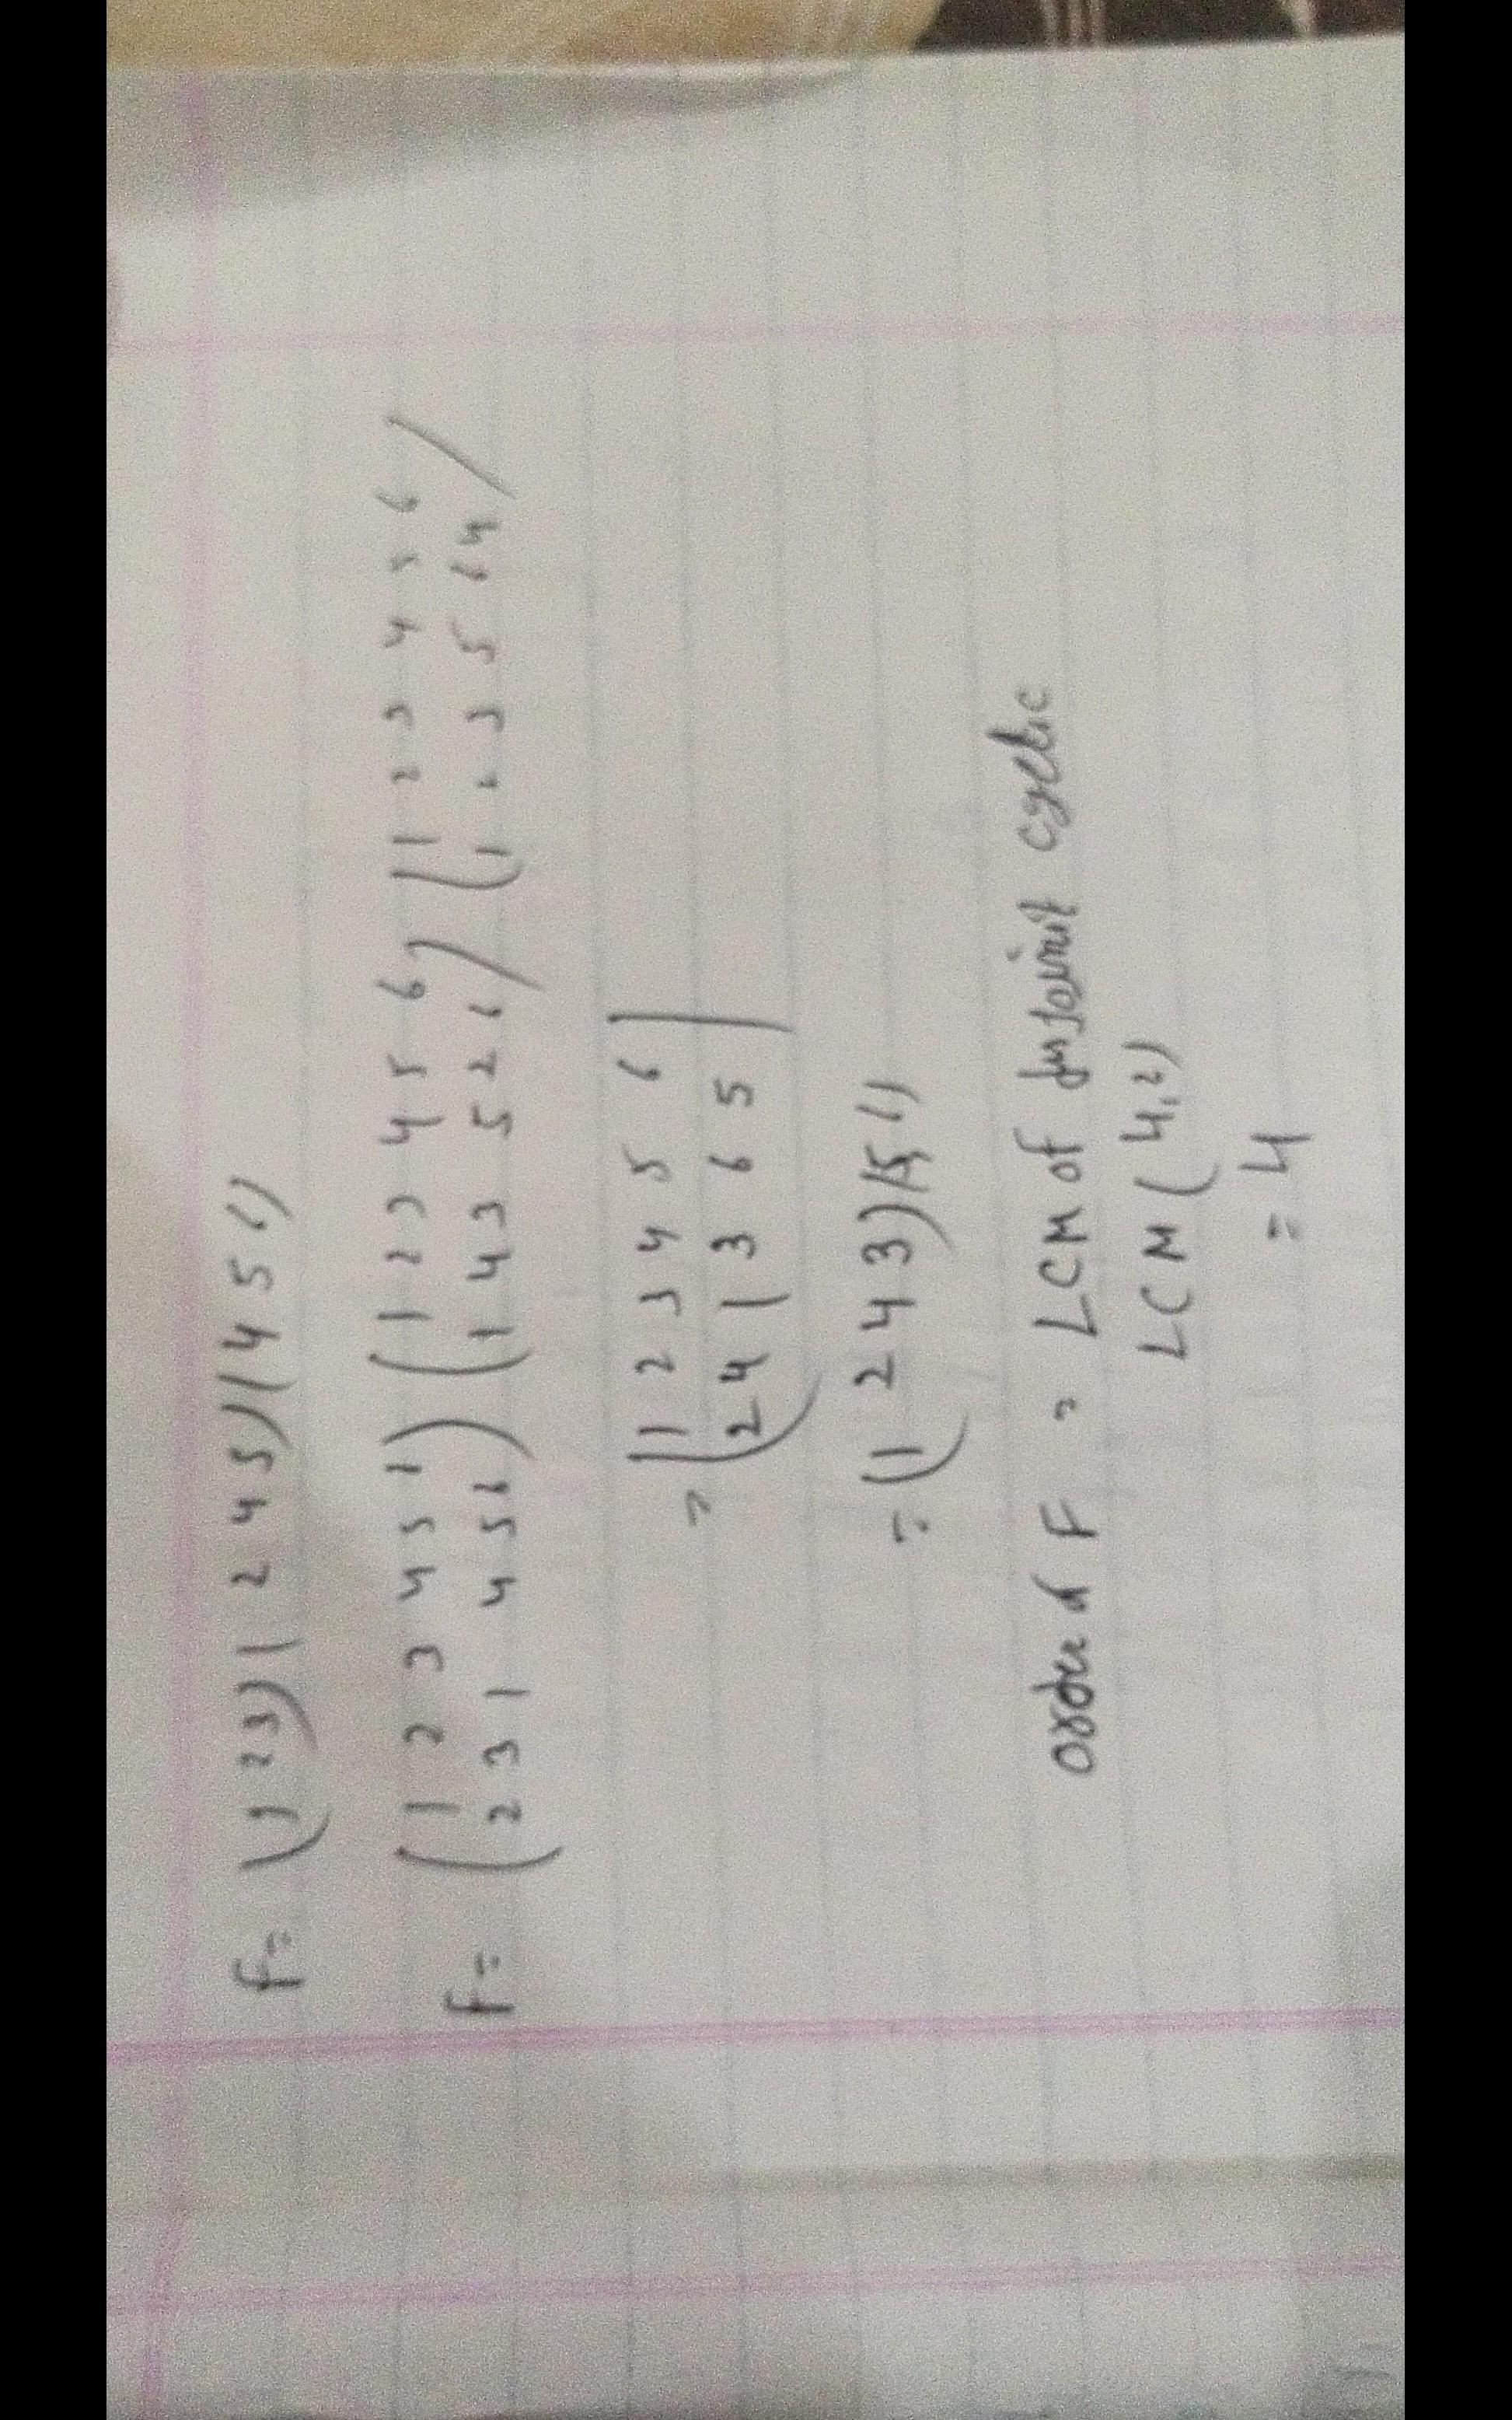 F = (1 2 3) ( 2 4 5) (4 5 6)
F = ( 1 2 3 4 5 6 ) ( 1 2 3 4 5 6 ) ( 1 2 3 4 5 6 )
( 2 3 1 4 5 6 ) ( 1 4 3 5 2 6 ) ( 1 2 3 5 6 4 )
= ( 1 2 3 4 5 6 )
( 2 4 1 3 6 5 )
= (1 2 4 3) (5 6)
order of F = LCM of disjoint cyclic
LCM ( 4, 2)
= 4